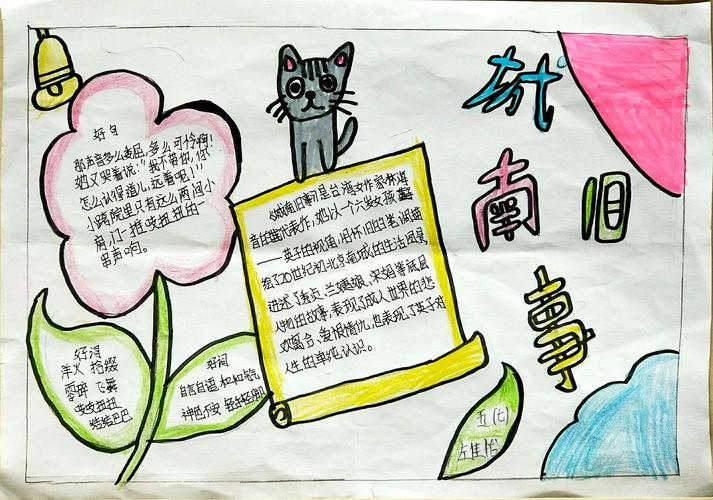 城
南 旧
事
好句
那声音多么委屈,多么可怜啊!
妞又哭着说:"我不带你,你
怎么认得道儿,远着呢!"
小跨院里只有这么两间小
房,门一推吱扭扭的一
串声响。
《城南旧事》是台湾女作家林海
音的作,她以一个六岁女孩
——英子的视角,用怀旧的笔调描
绘了20世纪初北京南城的生活风景
讲述了秀贞、兰姨娘、宋妈等底层
人物的故事,表现了成人世界的悲
欢离合、爱恨情仇,也表现了英子对
人生的单纯认识。
好词
拾掇
零碎 飞舞
吱吱扭扭
结结巴巴
好词
自言自语 和和气气
神色不安 轻轻
五(七)
左佳怡